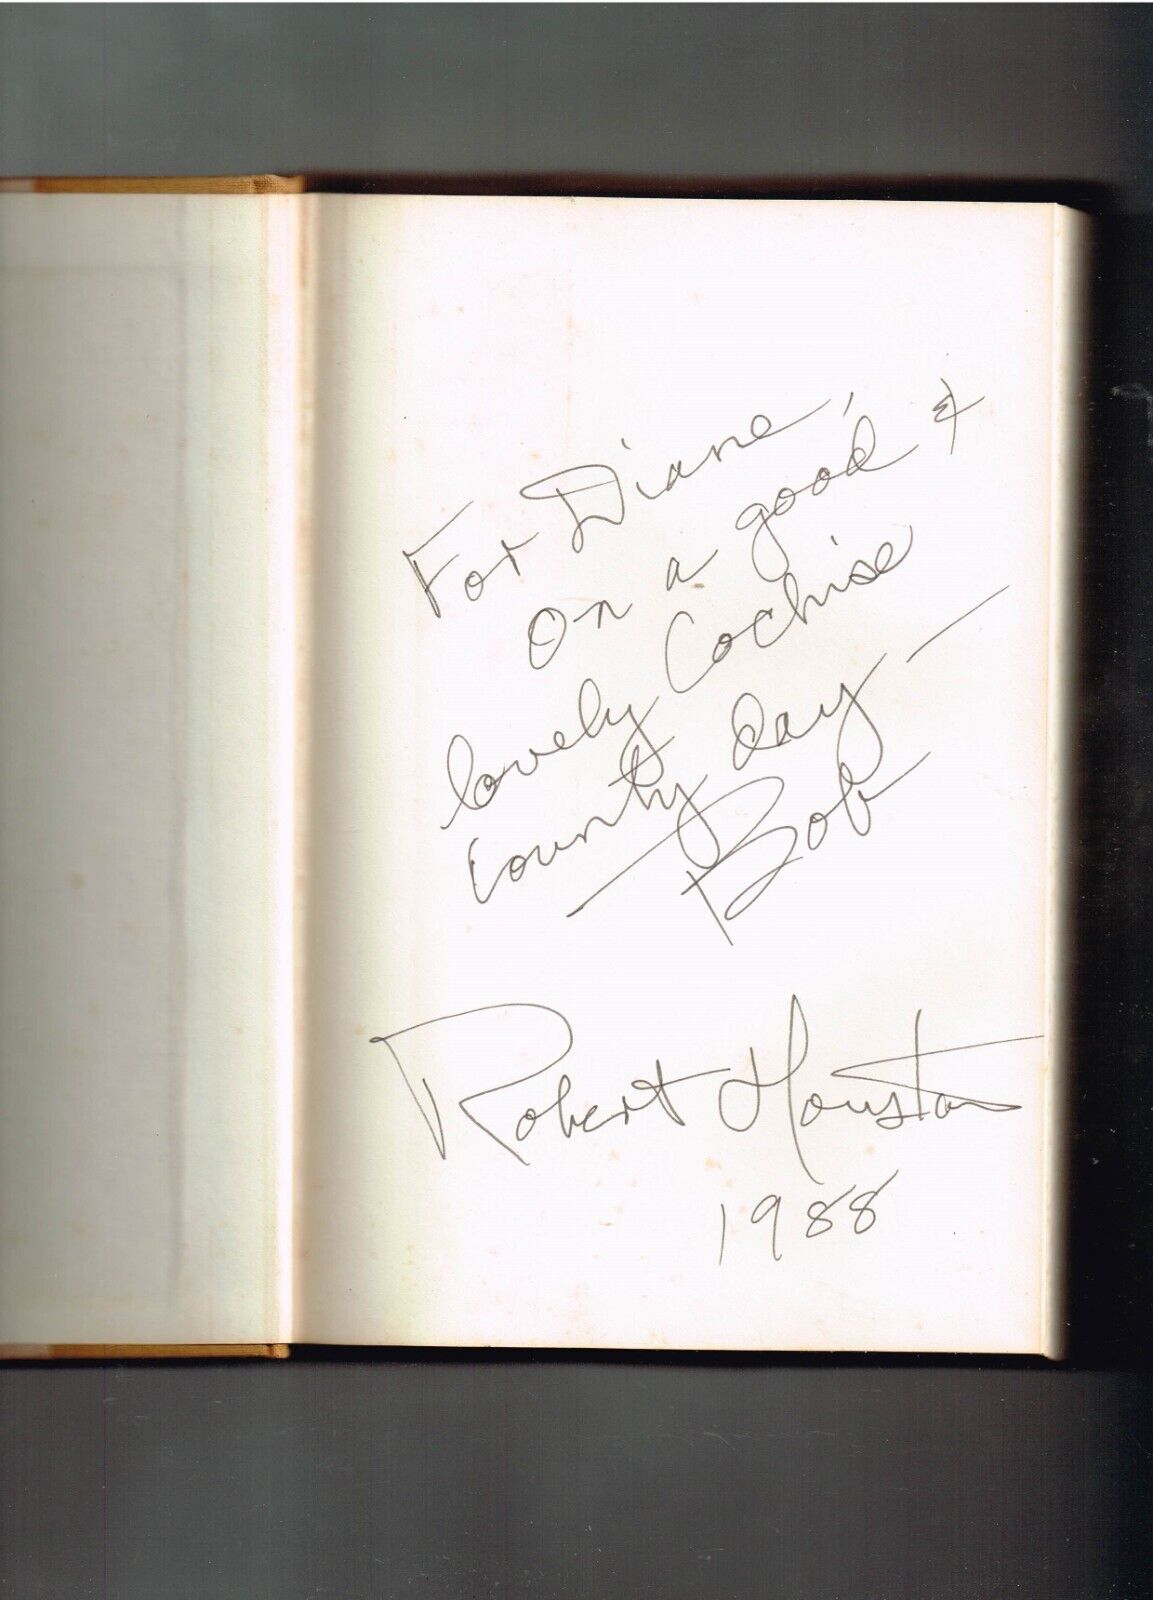 For Diane,
On a good &
lovely Cochise
County day —
— Bob
Robert Houston
1988